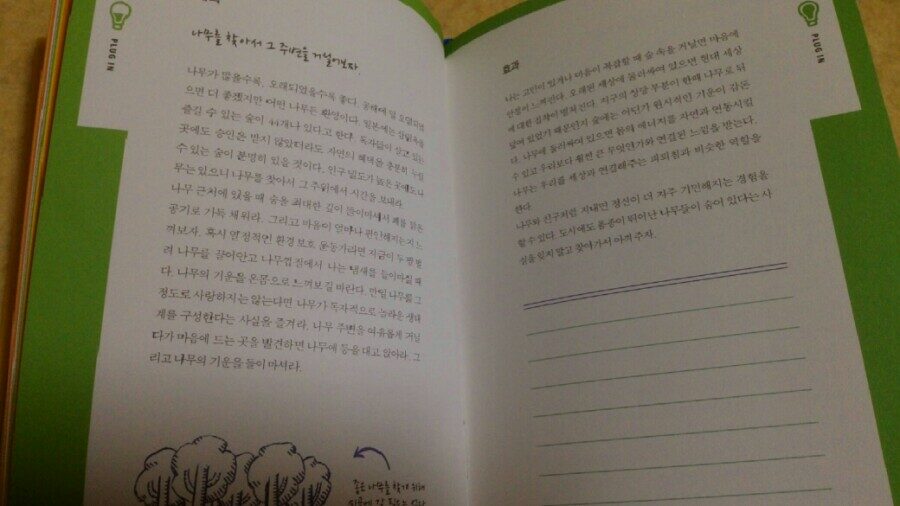 PLUG IN
나무를 찾아서 그 주변을 거닐어보자.
나무가 많을수록, 오래되었을수록 좋다. 울창해 덜 오염되었
으면 더 좋겠지만 어떤 나무든 환영이다. 일본에는 삼림욕을
즐길 수 있는 숲이 44개나 있다고 한다. 독자들이 살고 있는
곳에도 승인은 받지 않았더라도 자연의 혜택을 충분히 누릴
수 있는 숲이 분명히 있을 것이다. 인구 밀도가 높은 곳에도 나
무는 있으니 나무를 찾아서 그 주위에서 시간을 보내라.
나무 근처에 있을 때 숨을 최대한 깊이 들이마셔서 폐를 맑은
공기로 가득 채워라. 그리고 마음이 얼마나 편안해지는지 느
껴보자. 혹시 열정적인 환경 보호 운동가라면 지금이 두 팔 벌
려 나무를 끌어안고 나무껍질에서 나는 냄새를 들이마실 때
다. 나무의 기운을 온몸으로 느껴보길 바란다. 만일 나무를 그
정도로 사랑하지는 않는다면 나무가 독자적으로 놀라운 생태
계를 구성한다는 사실을 즐겨라. 나무 주변을 여유롭게 거닐
다가 마음에 드는 곳을 발견하면 나무에 등을 대고 앉아라. 그
리고 나무의 기운을 들이 마셔라.
좋은 나무를 찾기 위해
PLUG IN
효과
나는 고민이 있거나 마음이 복잡할 때 숲 속을 거닐면 마음에
안정이 느껴진다. 오래된 세상에 둘러싸여 있으면 현대 세상
에 대한 집착이 떨쳐진다. 지구의 상당 부분이 한때 나무로 뒤
덮여 있었기 때문인지 숲에는 어딘가 원시적인 기운이 감돈
다. 나무에 둘러싸여 있으면 몸의 에너지를 자연과 연동시킬
수 있고 우리보다 훨씬 큰 무엇인가와 연결된 느낌을 받는다.
나무는 우리를 세상과 연결해주는 피뢰침과 비슷한 역할을
한다.
나무와 친구처럼 지내면 정신이 더 자주 기민해지는 경험을
할 수 있다. 도시에도 품종이 뛰어난 나무들이 숨어 있다는 사
실을 잊지 말고 찾아가서 아껴 주자.